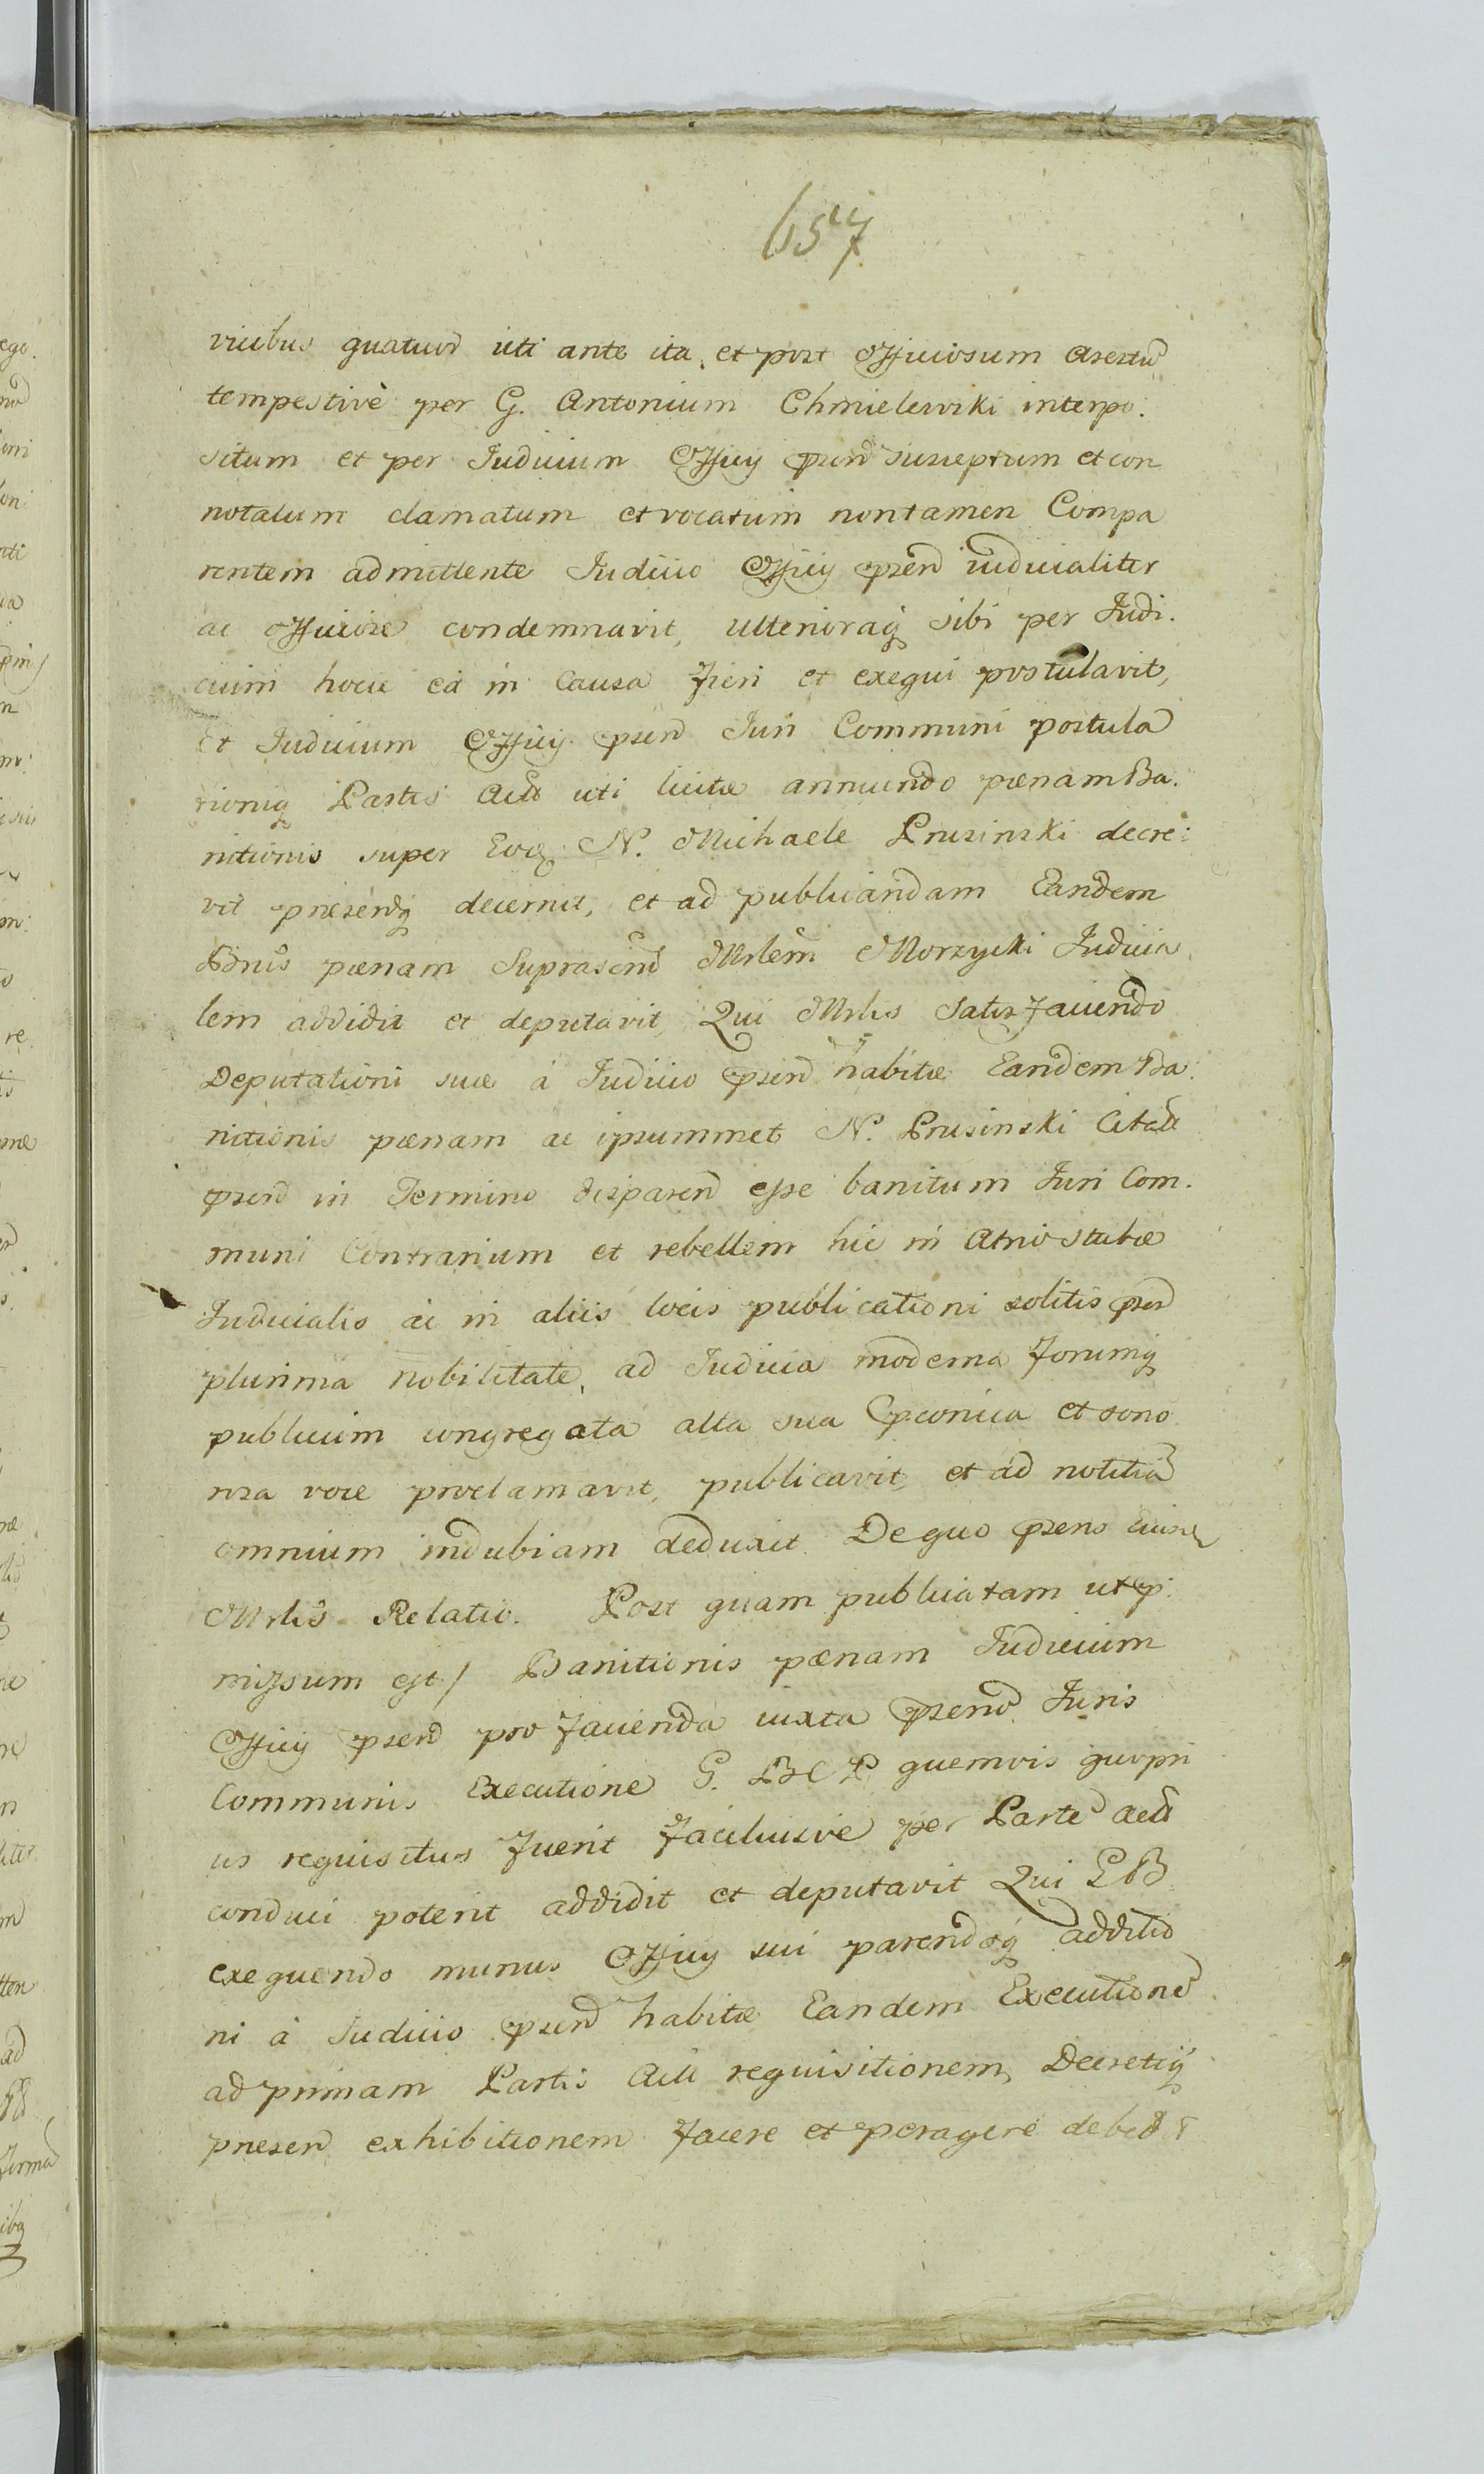 657
vicibus quatuor uti ante ita et post officiosum arestũ
tempestivè per G. Antonium Chmielewski interpo.
situm et per Iudicium Officij psend susceptum et con
notatum clamatum et vocatum non tamen Compa
rentem admittente Iudicio Officij psend iudicialiter
ac officiose condemnavit, ulterioraq sibi per Iudi.
cium hocce eâ in Causa fieri et exequi postulavit,
Et Iudicium Officij psend Iuri Communi postula
tioniq Partis Act uti licitæ annuendo pœnam Ba.
nitionis super Eoq N. Michaele Prusinski decre:
vit præsendq decernit, et ad publicandam Eandem
Bdnis pœnam Suprascrid Mrlem Morzycki Iudicia
lem addidit et deputavit, Qui Mrlis Satisfaciendo
Deputationi suæ à Iudicio psend habitæ Eandem Ba:
nitionis pœnam ac ipsummet N. Prusinski Citat
psend in Termino disparend esse banitum Iuri Com.
muni Contrarium et rebellem hic in Atrio stubæ
Iudicialis ac in aliis locis publicationi solitis psed
plurima nobilitate, ad Iudicia moderna forumq
publicum congregata alta sua pconica et sono
rosa voce proclamavit, publicavit, et ad notitiã
omnium indubiam deduxit. De quo psens eius
Mrlis Relatio. Post quam publicatam ut p:
missum est / Banitionis pœnam Iudicium
Officij psend pro facienda iuxta psend Iuris
Communis Executione G. B C P quemvis quo pri
us requisitus fuerit faciliusve per Partẽ Act
conduci poterit addidit et deputavit Qui G B
exequendo munus Officij sui parendoq additio
ni à Iudicio psend habitæ Eandem Executionẽ
ad primam Partis Act requisitionem, Decretiq
præsend exhibitionem facere et peragere debebit